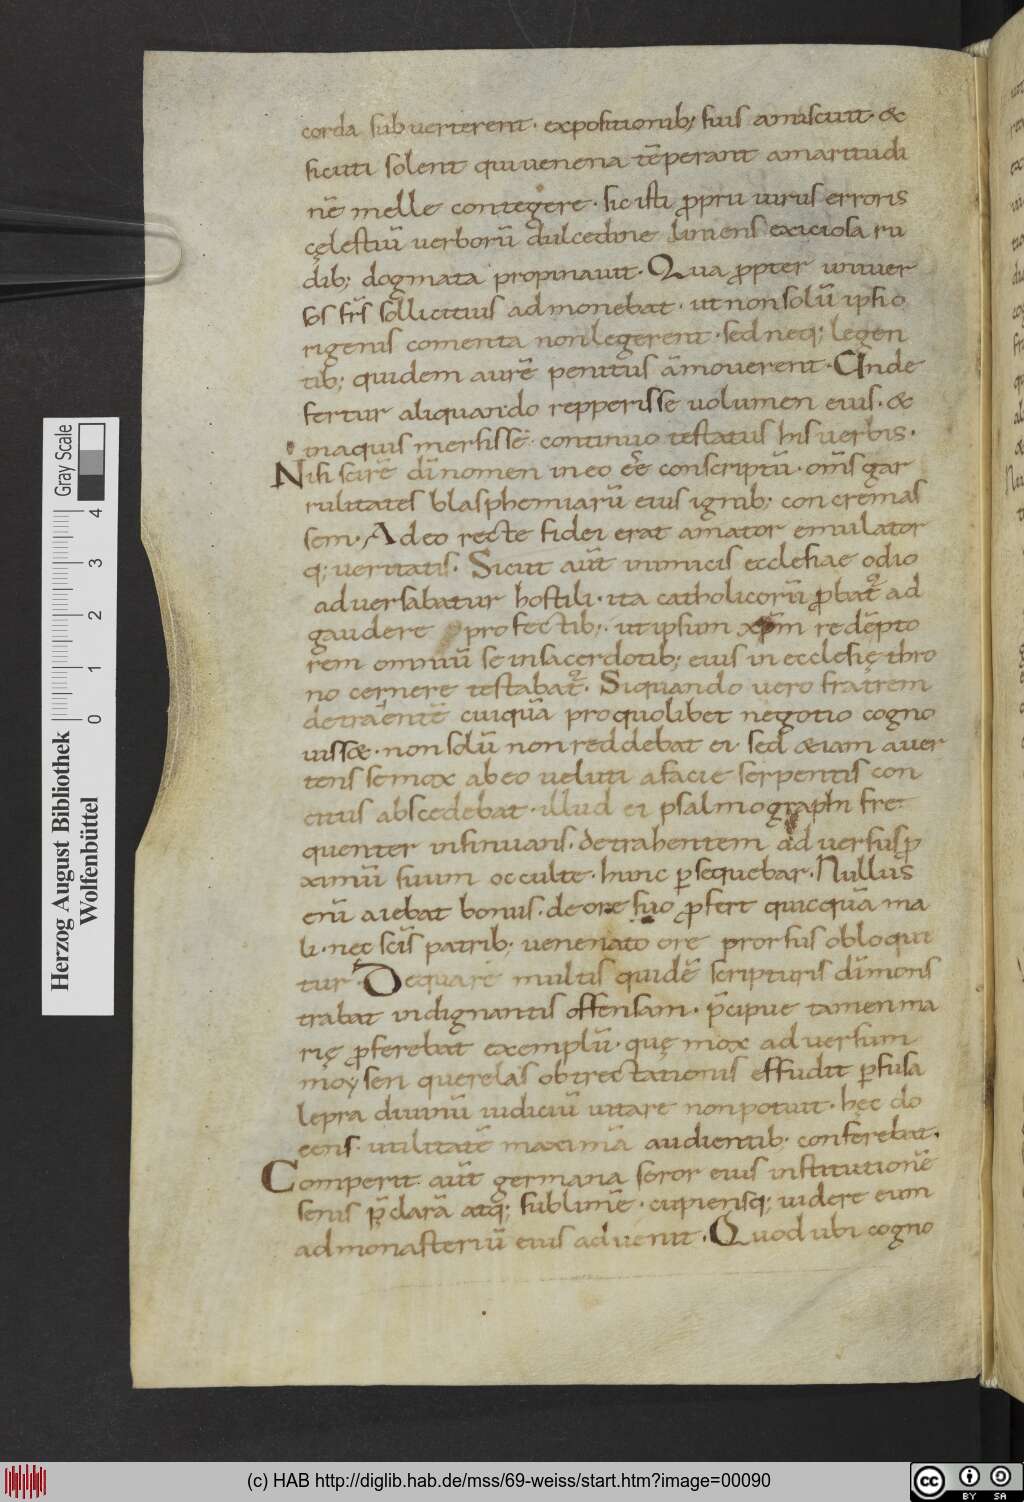 corda subuerterent· expositionib; suis amiscuit· &
sicuti solent qui uenena tēperant amaritudi
nē melle contegere· sic isti ꝓprii uirus erroris
cęlestiū uerborū dulcedine linens exiciosa ru
dib; dogmata propinauit· Qua ꝓpter uniuer
sos frs̄ sollicitius admonebat· ut non solū ipse o
rigenis comenta non legerent· sed neq; legen
tib; quidem aurē penitus āmouerent· Unde
fertur aliquando repperisse uolumen eius· &
in aquis mersisse· continuo testatus his uerbis·
Nisi scirē dn̄i nomen in eo eē conscriptū· om̄s gar
rulitates blasphemiarū eius ignib; concremas
sem· Adeo recte fidei erat amator emulator
q; ueritatis· Sicut aūt inimicis ecclesiae odio
aduersabatur hostili· ita catholicorū ꝓbat᷒ ad
gaudere profectib; ut ipsum xp̄m redēpto
rem omniū se in sacerdotib; eius in ecclesię thro
no cernere testabat᷒· Si quando uero fratrem
detrahentē cuiquā pro quolibet negotio cogno
uiss&· non solū non reddebat ei· sed &iam auer
tens se mox ab eo ueluti a facie serpentis con
citus abscedebat· illud ei psalmographi fre
quenter insinuans· detrahentem aduersus ꝓ
ximū suum occulte· hunc ꝑsequebar· Nullus
enū aiebat bonus· de ore suo ꝓfert quicquā ma
li· nec scīs patrib; uenenato ore prorsus obloqui
tur· De qua rē multis quidē scripturis dīmons
trabat indignantis offensam· p̄cipue tamen ma
rię ꝓferebat exemplū· quę mox aduersum
moysen querelas obtrectationis effudit ꝑfusa
lepra diuinū iudiciū uitare non potuit· hęc do
cens· utilitatē maximā audientib· conferebat·
Comperit aūt germana soror eius institutionē
senis p̄clarā atq; sublimē· cupiensq; uidere eum
ad monasteriū eius aduenit· Quod ubi cogno
Herzog August Bibliothek
Wolfenbüttel
0 1 2 3 4
Gray Scale
(c) HAB http://diglib.hab.de/mss/69-weiss/start.htm?image=00090
cc BY SA